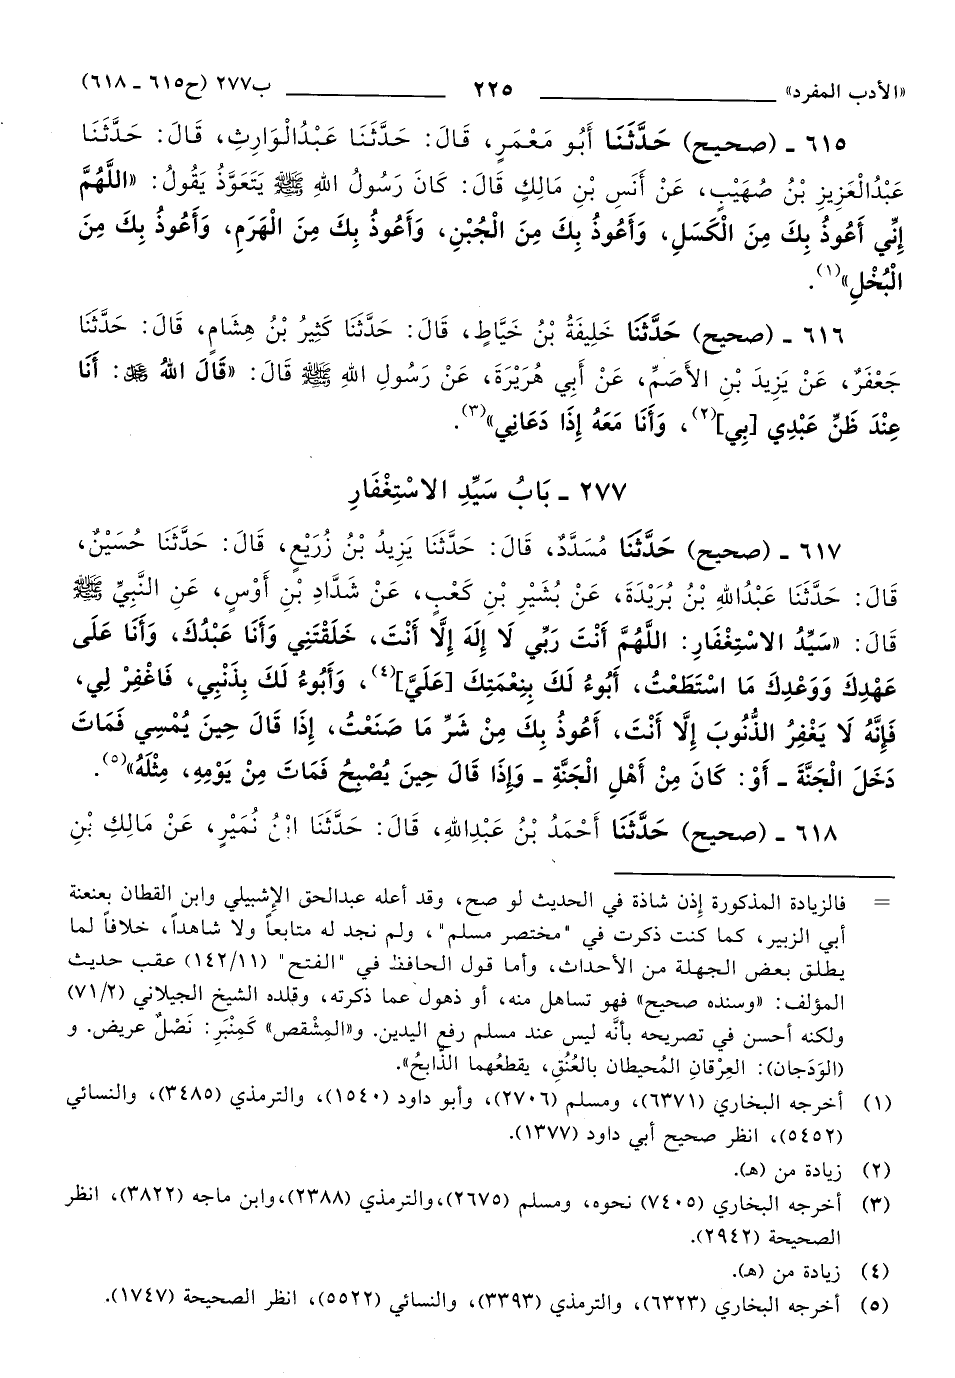 «الأدب المفرد» ٢٢٥ ب٢٧٧ (ح٦١٥ ـ ٦١٨)
٦١٥ ـ (صحيح) حَدَّثَنَا أَبُو مَعْمَرٍ، قَالَ: حَدَّثَنَا عَبْدُالْوَارِثِ، قَالَ: حَدَّثَنَا
عَبْدُالْعَزِيزِ بْنُ صُهَيْبٍ، عَنْ أَنَسِ بْنِ مَالِكٍ قَالَ: كَانَ رَسُولُ اللهِ ﷺ يَتَعَوَّذُ يَقُولُ: «اللَّهُمَّ
إِنِّي أَعُوذُ بِكَ مِنَ الْكَسَلِ، وَأَعُوذُ بِكَ مِنَ الْجُبْنِ، وَأَعُوذُ بِكَ مِنَ الْهَرَمِ، وَأَعُوذُ بِكَ مِنَ
الْبُخْلِ»(١).
٦١٦ ـ (صحيح) حَدَّثَنَا خَلِيفَةُ بْنُ خَيَّاطٍ، قَالَ: حَدَّثَنَا كَثِيرُ بْنُ هِشَامٍ، قَالَ: حَدَّثَنَا
جَعْفَرٌ، عَنْ يَزِيدَ بْنِ الأَصَمِّ، عَنْ أَبِي هُرَيْرَةَ، عَنْ رَسُولِ اللهِ ﷺ قَالَ: «قَالَ اللهُ ﷿: أَنَا
عِنْدَ ظَنِّ عَبْدِي [بِي](٢)، وَأَنَا مَعَهُ إِذَا دَعَانِي»(٣).
٢٧٧ ـ بَابُ سَيِّدِ الاسْتِغْفَارِ
٦١٧ ـ (صحيح) حَدَّثَنَا مُسَدَّدٌ، قَالَ: حَدَّثَنَا يَزِيدُ بْنُ زُرَيْعٍ، قَالَ: حَدَّثَنَا حُسَيْنٌ،
قَالَ: حَدَّثَنَا عَبْدُاللهِ بْنُ بُرَيْدَةَ، عَنْ بُشَيْرِ بْنِ كَعْبٍ، عَنْ شَدَّادِ بْنِ أَوْسٍ، عَنِ النَّبِيِّ ﷺ
قَالَ: «سَيِّدُ الاسْتِغْفَارِ: اللَّهُمَّ أَنْتَ رَبِّي لَا إِلَهَ إِلَّا أَنْتَ، خَلَقْتَنِي وَأَنَا عَبْدُكَ، وَأَنَا عَلَى
عَهْدِكَ وَوَعْدِكَ مَا اسْتَطَعْتُ، أَبُوءُ لَكَ بِنِعْمَتِكَ [عَلَيَّ](٤)، وَأَبُوءُ لَكَ بِذَنْبِي، فَاغْفِرْ لِي،
فَإِنَّهُ لَا يَغْفِرُ الذُّنُوبَ إِلَّا أَنْتَ، أَعُوذُ بِكَ مِنْ شَرِّ مَا صَنَعْتُ، إِذَا قَالَ حِينَ يُمْسِي فَمَاتَ
دَخَلَ الْجَنَّةَ ـ أَوْ: كَانَ مِنْ أَهْلِ الْجَنَّةِ ـ وَإِذَا قَالَ حِينَ يُصْبِحُ فَمَاتَ مِنْ يَوْمِهِ، مِثْلَهُ»(٥).
٦١٨ ـ (صحيح) حَدَّثَنَا أَحْمَدُ بْنُ عَبْدِاللهِ، قَالَ: حَدَّثَنَا ابْنُ نُمَيْرٍ، عَنْ مَالِكِ بْنِ
= فالزيادة المذكورة إذن شاذة في الحديث لو صح، وقد أعله عبدالحق الإشبيلي وابن القطان بعنعنة
أبي الزبير، كما كنت ذكرت في "مختصر مسلم"، ولم نجد له متابعاً ولا شاهداً، خلافاً لما
يطلق بعض الجهلة من الأحداث، وأما قول الحافظ في "الفتح" (١٤٢/١١) عقب حديث
المؤلف: «وسنده صحيح» فهو تساهل منه، أو ذهول عما ذكرته، وقلده الشيخ الجيلاني (٧١/٢)
ولكنه أحسن في تصريحه بأنَّه ليس عند مسلم رفع اليدين. و«المِشْقص» كَمِنْبَرِ: نَصْلٌ عريض. و
(الوَدَجان): العِرْقانِ المُحيطان بالعُنُقِ، يقطعُهما الذَّابحُ».
(١) أخرجه البخاري (٦٣٧١)، ومسلم (٢٧٠٦)، وأبو داود (١٥٤٠)، والترمذي (٣٤٨٥)، والنسائي
(٥٤٥٢)، انظر صحيح أبي داود (١٣٧٧).
(٢) زيادة من (هـ).
(٣) أخرجه البخاري (٧٤٠٥) نحوه، ومسلم (٢٦٧٥)،والترمذي (٢٣٨٨)،وابن ماجه (٣٨٢٢)، انظر
الصحيحة (٢٩٤٢).
(٤) زيادة من (هـ).
(٥) أخرجه البخاري (٦٣٢٣)، والترمذي (٣٣٩٣)، والنسائي (٥٥٢٢)، انظر الصحيحة (١٧٤٧).